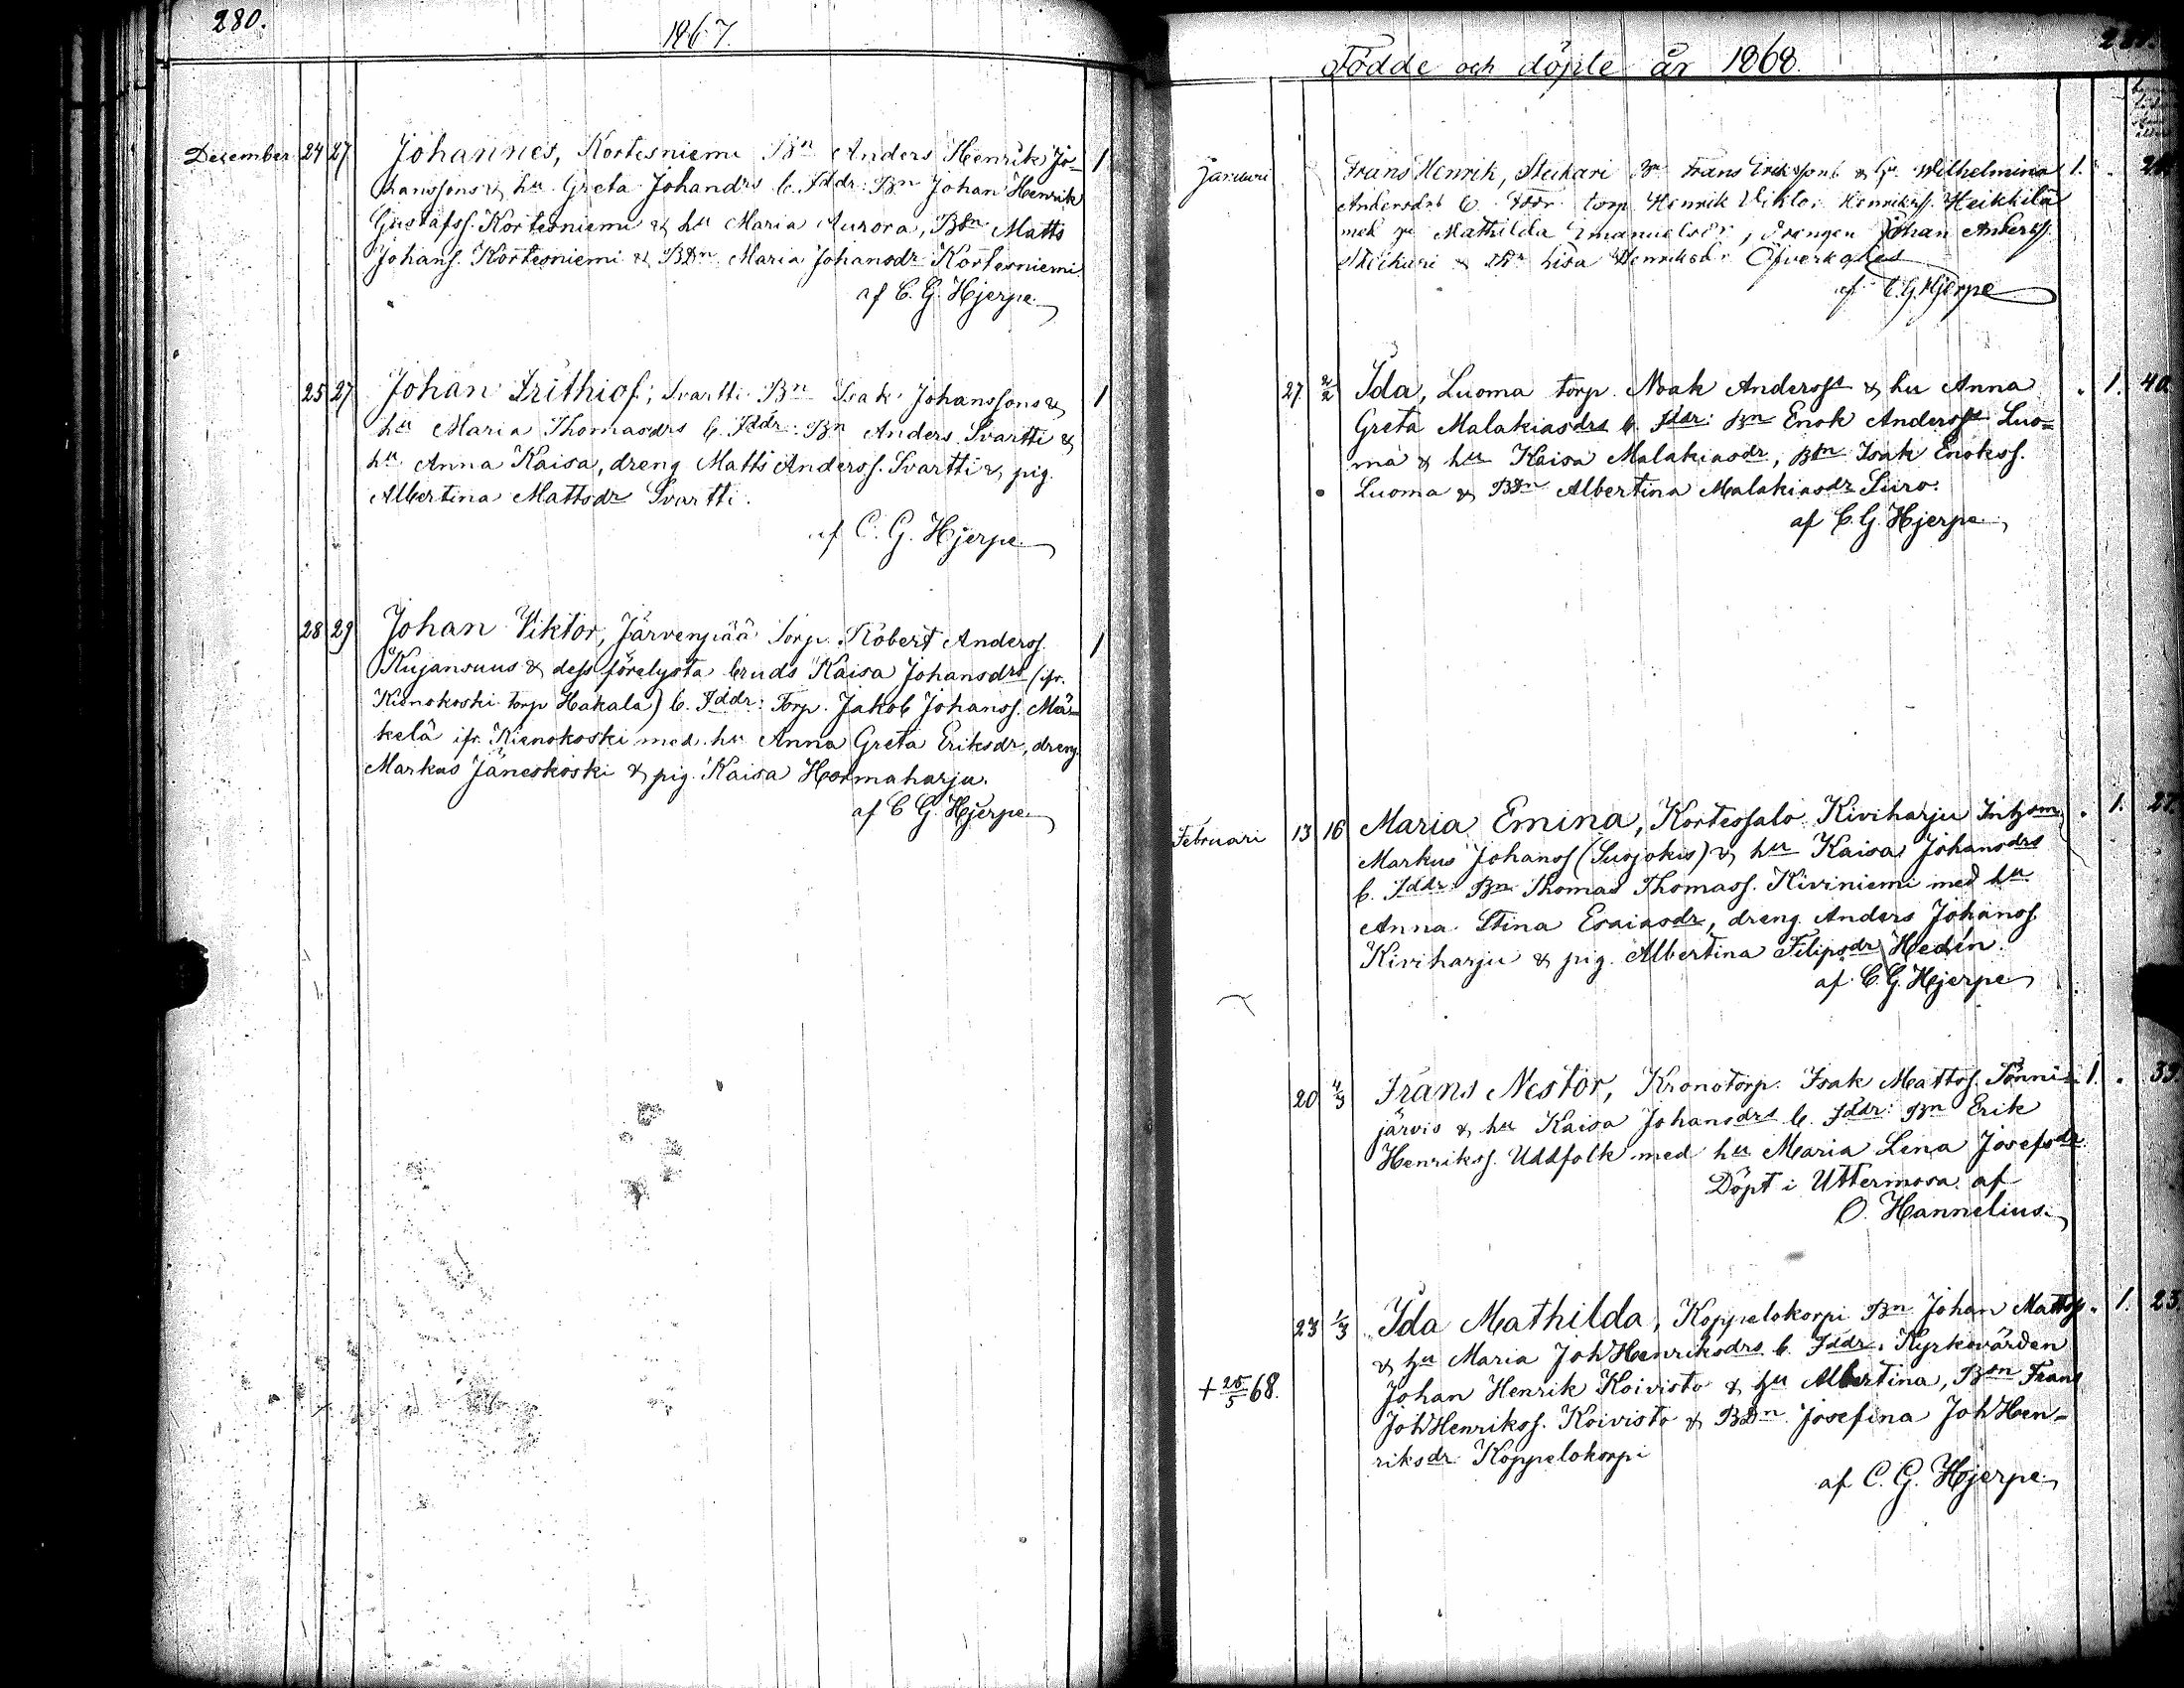 280.
1867.
December 24 27 Johannes, Kortesniemi Bn Anders Henrik Jo- 1
hanssons & hu Greta Johandrs b. Fddr: Bn Johan Henrik
Gustafss. Kortesniemi & hu Maria Aurora, BSn Matts
Johanss. Kortesniemi & BDn Maria Johansdr Kortesniemi
af C. G. Hjerpe
25 27 Johan Frithiof, Svartti Bn Isak Johanssons & 1
hu Maria Thomasdrs b. Fddr: Bn Anders Svartti &
hu Anna Kaisa, dreng Matts Anderss. Svartti & pig.
Albertina Mattsdr Svartti.
af C. G. Hjerpe
28 29 Johan Viktor, Järvenpää Torp. Robert Anderss. 1
Kujansuus & dess förelysta bruds Kaisa Johansdrs (ifr.
Kienokoski torp Hakala) b. Fddr: Torp. Jakob Johanss. Mä-
kelä ifr. Kienokoski med hu Anna Greta Eriksdr, dreng
Markus Jäneskoski & pig. Kaisa Hormaharju.
af C G. Hjerpe
Födde och döpte år 1868.
Januari Frans Henrik, Bn Frans Erikssons & hu Wilhelmina 1.
Andersdrs b. Fddr. torp Henrik Viktor Henrikss. Heikkilä
med hu Mathilda Emanuelsdr, Drengen Johan Anderss.
& Lisa Henriksdr
af C. G. Hjerpe
27 2/2 Ida, Luoma torp. Noak Anderss & hu Anna 1. 40
Greta Malakiasdrs b. Fddr: Bn Enok Anderss Luo=
ma & hu Kaisa Malakiasdr, BSn Isak Enokss.
Luoma & BDn Albertina Malakiasdr Luro.
af C. G. Hjerpe
Februari 13 16 Maria Emina, Kortessalo Kiviharju Inhsm. 1. 27
Markus Johanss (Suojokis) & hu Kaisa Johansdrs
b. Fddr: Bn Thomas Thomass. Kiviniemi med hu
Anna Stina Esaiasdr, dreng Anders Johanss.
Kiviharju & pig. Albertina Filipsdr Hedén.
af C. G. Hjerpe
20 Frans Nestor, Kronotorp. Isak Mattss. Tönni- 1. 39
järvis & hu Kaisa Johansdrs b. Fddr: Bn Erik
Henrikss. Uddfolk med hu Maria Lena Josefsdr.
Döpt i Uttermosa af
O. Hannelius.
23 1/3 Ida Mathilda, Koppelokorpi Bn Johan Mattss. 1. 23
& hu Maria JohHenriksdrs b. Fddr: Kyrkovärden
+ 25/5 68. Johan Henrik Koivisto & hu Albertina, BSn Frans
JohHenrikss. Koivisto & BDn Josefina JohHen-
riksdr Koppelokorpi
af C. G. Hjerpe